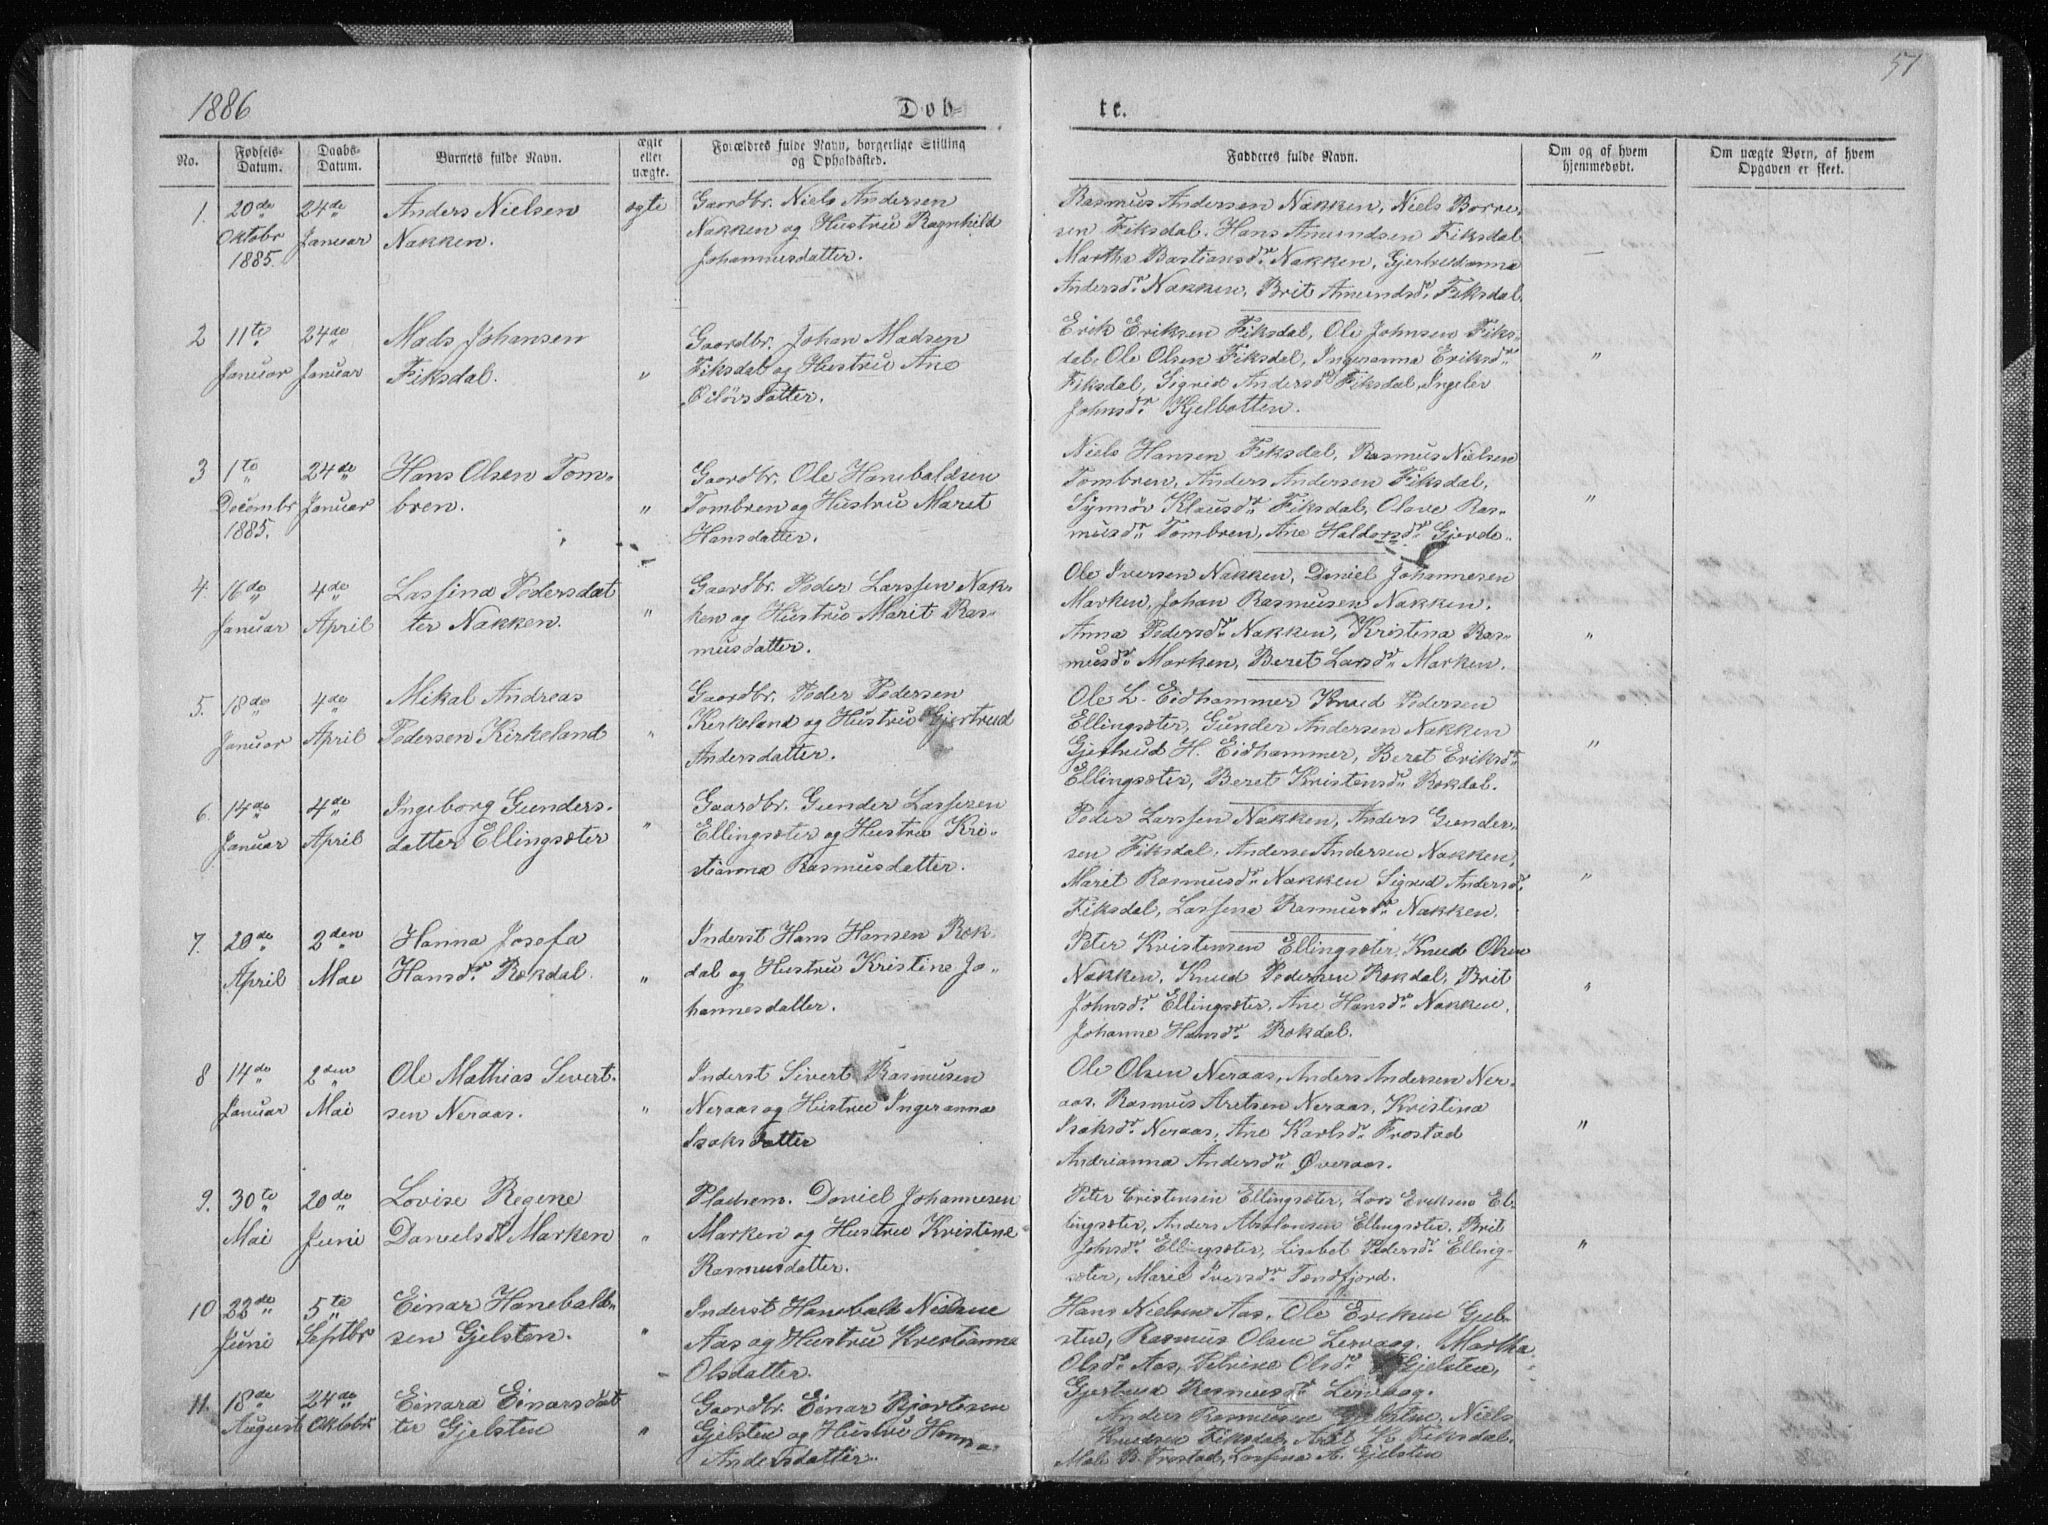 1886
57
Døb-
te.
No.
Fødsels-Datum.
Daabs-Datum.
Barnets fulde Navn.
ægte eller uægte.
Forældres fulde Navn, borgerlige Stilling og Opholdssted.
Fadderes fulde Navn.
Om og af hvem hjemmedøbt.
Om uægte Børn, af hvem Opgaven er skeet.
1.
20de Oktobr 1885.
24de Januar
Anders Nielsen
Nakken.
ægte
Gaardbr. Niels Andersen
Nakken og Hustru Ragnhild
Johannesdatter.
Rasmus Andersen Nakken, Niels Borre-
sen Fiksdal. Hans Amundsen Fiksdal
Martha Bastiansdr. Nakken, Gjertrudanna
Andersdr. Nakken, Brit Amundsdr. Fiksdal.
—
2
11te Januar
24de Januar
Mads Johansen
Fiksdal.
"
Gaardbr. Johan Madsen
Fiksdal og Hustru Ane
Eiløvsdatter.
Erik Eriksen Fiksdal, Ole Johnsen Fiks-
dal, Ole Olsen Fiksdal, Ingeranna Eriksdr.
Fiksdal, Sigrid Andersdr. Fiksdal, Ingeler
Johnsdr. Kjelbotten.
"
3
1te Decembr 1885.
24de Januar
Hans Olsen Tom-
bren.
"
Gaardbr. Ole Hanebaldsen
Tombren og Hustru Maret
Hansdatter.
Niels Hansen Fiksdal, Rasmus Nielsen
Tombren, Anders Andersen Fiksdal,
Synnøv Klausdr. Fiksdal, Olave Ras-
musdr. Tombren, Ane Haldorsdr. Gjerde.
"
4.
16de Januar
4de April
Lassina Pedersdat
ter Nakken.
"
Gaardbr. Peder Larssen Nak-
ken og Hustru Marit Ras-
musdatter.
Ole Iversen Nakken, Daniel Johannesen
Marken, Johan Rasmusen Nakken.
Anna Pedersdr. Nakken, Kristina Ras-
musdr. Marken, Beret Larsdr. Marken.
"
5.
18de Januar
4de April
Mikal Andreas
Pedersen Kirkeland
"
Gaardbr. Peder Pedersen
Kirkeland og Hustru Gjertrud
Andersdatter.
Ole L. Eidhammer Knud Pedersen
Ellingsæter, Gunder Andersen Nakken
Gjertrud H. Eidhammer, Beret Eriksdr.
Ellingsæter, Beret Kristensdr. Rekdal.
"
6.
14de Januar
4de April
Ingeborg Gunders-
datter Ellingsæter
"
Gaardbr. Gunder Lassesen
Ellingsæter og Hustru Kri-
stianna Rasmusdatter.
Peder Larssen Nakken, Anders Gunder-
sen Fiksdal, Anders Andersen Nakken,
Marit Rasmusdr. Nakken Sigrid Andersdr.
Fiksdal, Lassina Rasmusdr. Nakken.
"
7.
20de April
2den Mai
Hanna Josefa
Hansdr. Rekdal.
"
Inderst Hans Hansen Rek-
dal og Hustru Kristine Jo-
hannesdatter.
Peter Kristensen Ellingsæter, Knud Olsen
Nakken, Knud Pedersen Rekdal, Brit
Johnsdr. Ellingsæter, Ane Hansdr. Nakken,
Johanne Hansdr. Rekdal.
"
8
14de Januar
2den Mai
Ole Mathias Sivert-
sen Neraas.
"
Inderst Sivert Rasmusen
Neraas og Hustru Ingeranna
Isaksdatter
Ole Olsen Neraas, Anders Andersen Ner-
aas. Rasmus Aretsen Neraas, Kristina
Isaksdr. Neraas, Ane Karlsdr. Frostad
Andrianna Andersdr. Øveraas.
"
9.
30te Mai
20de Juni
Lovise Regine
Danielsdr. Marken
"
Pladsem. Daniel Johannesen
Marken og Hustru Kristine
Rasmusdatter.
Peter Cristensen Ellingsæter, Lars Eriksen El-
lingsæter, Anders Absalonsen Ellingsæter, Brit
Johnsdr. Ellingsæter, Lisabet Pedersdr. Elling-
sæter, Marie Iversdr. Tændfjord.
"
10
22de Juni
5te Septbr
Einar Hanebald-
sen Gjelsten.
"
Inderst Hanebalt Nielsen
Aas og Hustru Kristianna
Olsdatter.
Hans Nielsen Aas, Ole Eriksen Gjel-
sten, Rasmus Olsen Lervaag, Martha
Olsdr. Aas, Petrine Olsdr. Gjelsten,
Gjertrud Rasmusdr. Lervaag.
11.
18de August
24de Oktobr
Einara Einarsdat
ter Gjelsten
"
Gaardbr. Einar Bjortesen
Gjelsten og Hustru Hanna
Andersdatter.
Anders Rasmusen Gjelsten, Niels
Knudsen Fiksdal, Fiksdal.
Mali B. Frostad, Lassina A. Gjelsten